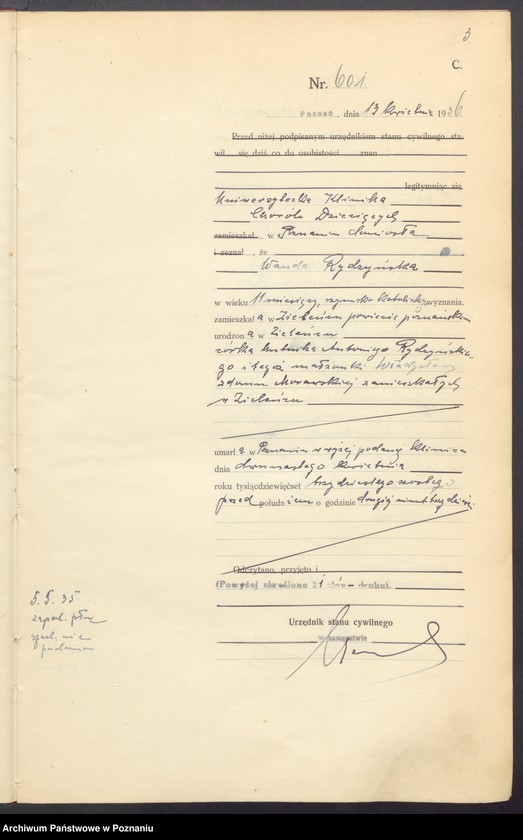 3
C.
Nr. 601
Poznań, dnia 13 kwietnia 1936
Przed niżej podpisanym urzędnikiem stanu cywilnego sta-
wił się dziś co do osobistości znan
legitymując się
Uniwersytecka Klinika
Chorób Dziecięcych
zamieszkał w Poznaniu doniosła
i zeznał, że
Wanda Rydzyńska
w wieku 11 miesięcy, rzymsko katolickiego wyznania,
zamieszkał a w powiecie poznańskim
urodzon a w
córka Antoniego Rydzyńskie-
go i tegoż małżonki Władysławy
z domu Morawskiej zamieszkałych
w
umarł a w Poznaniu w wyżej podanej Klinice
dnia dwunastego kwietnia
roku tysiącdziewięćset trzydziestego szóstego
przed południem o godzinie drugiej minut trzydzieści.
Odczytano, przyjęto i
(Powyżej skreślono 21 słów druku).
Urzędnik stanu cywilnego
w zastępstwie
5.5.35
zapal. płuc
podano
Archiwum Państwowe w Poznaniu